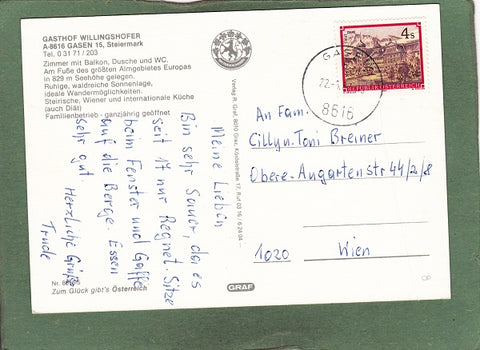 GASTHOF WILLINGSHOFER
A-8616 GASEN 15, Steiermark
Tel. 0 31 71 / 203
Zimmer mit Balkon, Dusche und WC.
Am Fuße des größten Almgebietes Europas
in 829 m Seehöhe gelegen.
Ruhige, waldreiche Sonnenlage,
ideale Wandermöglichkeiten.
Steirische, Wiener und internationale Küche
(auch Diät)
Familienbetrieb - ganzjährig geöffnet
Meine Lieben
Bin sehr Sauer, da es
seit 17 nur Regnet. Sitze
beim Fenster und Gaffe
auf die Berge. Essen
sehr gut Herzliche Grüße
Trude
Nr.
Zum Glück gibt's Österreich
Verlag R. Graf, 8020 Graz,
GRAF
4 S
REPUBLIK ÖSTERREICH
8616
An Fam.
Cilly u. Toni Breiner
Obere-Augartenstr 44/2/8
1020 Wien